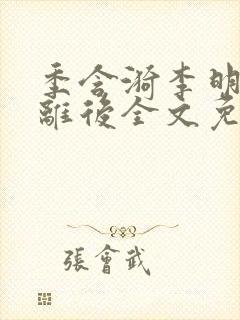 季含漪李明
離後全文免
張會武